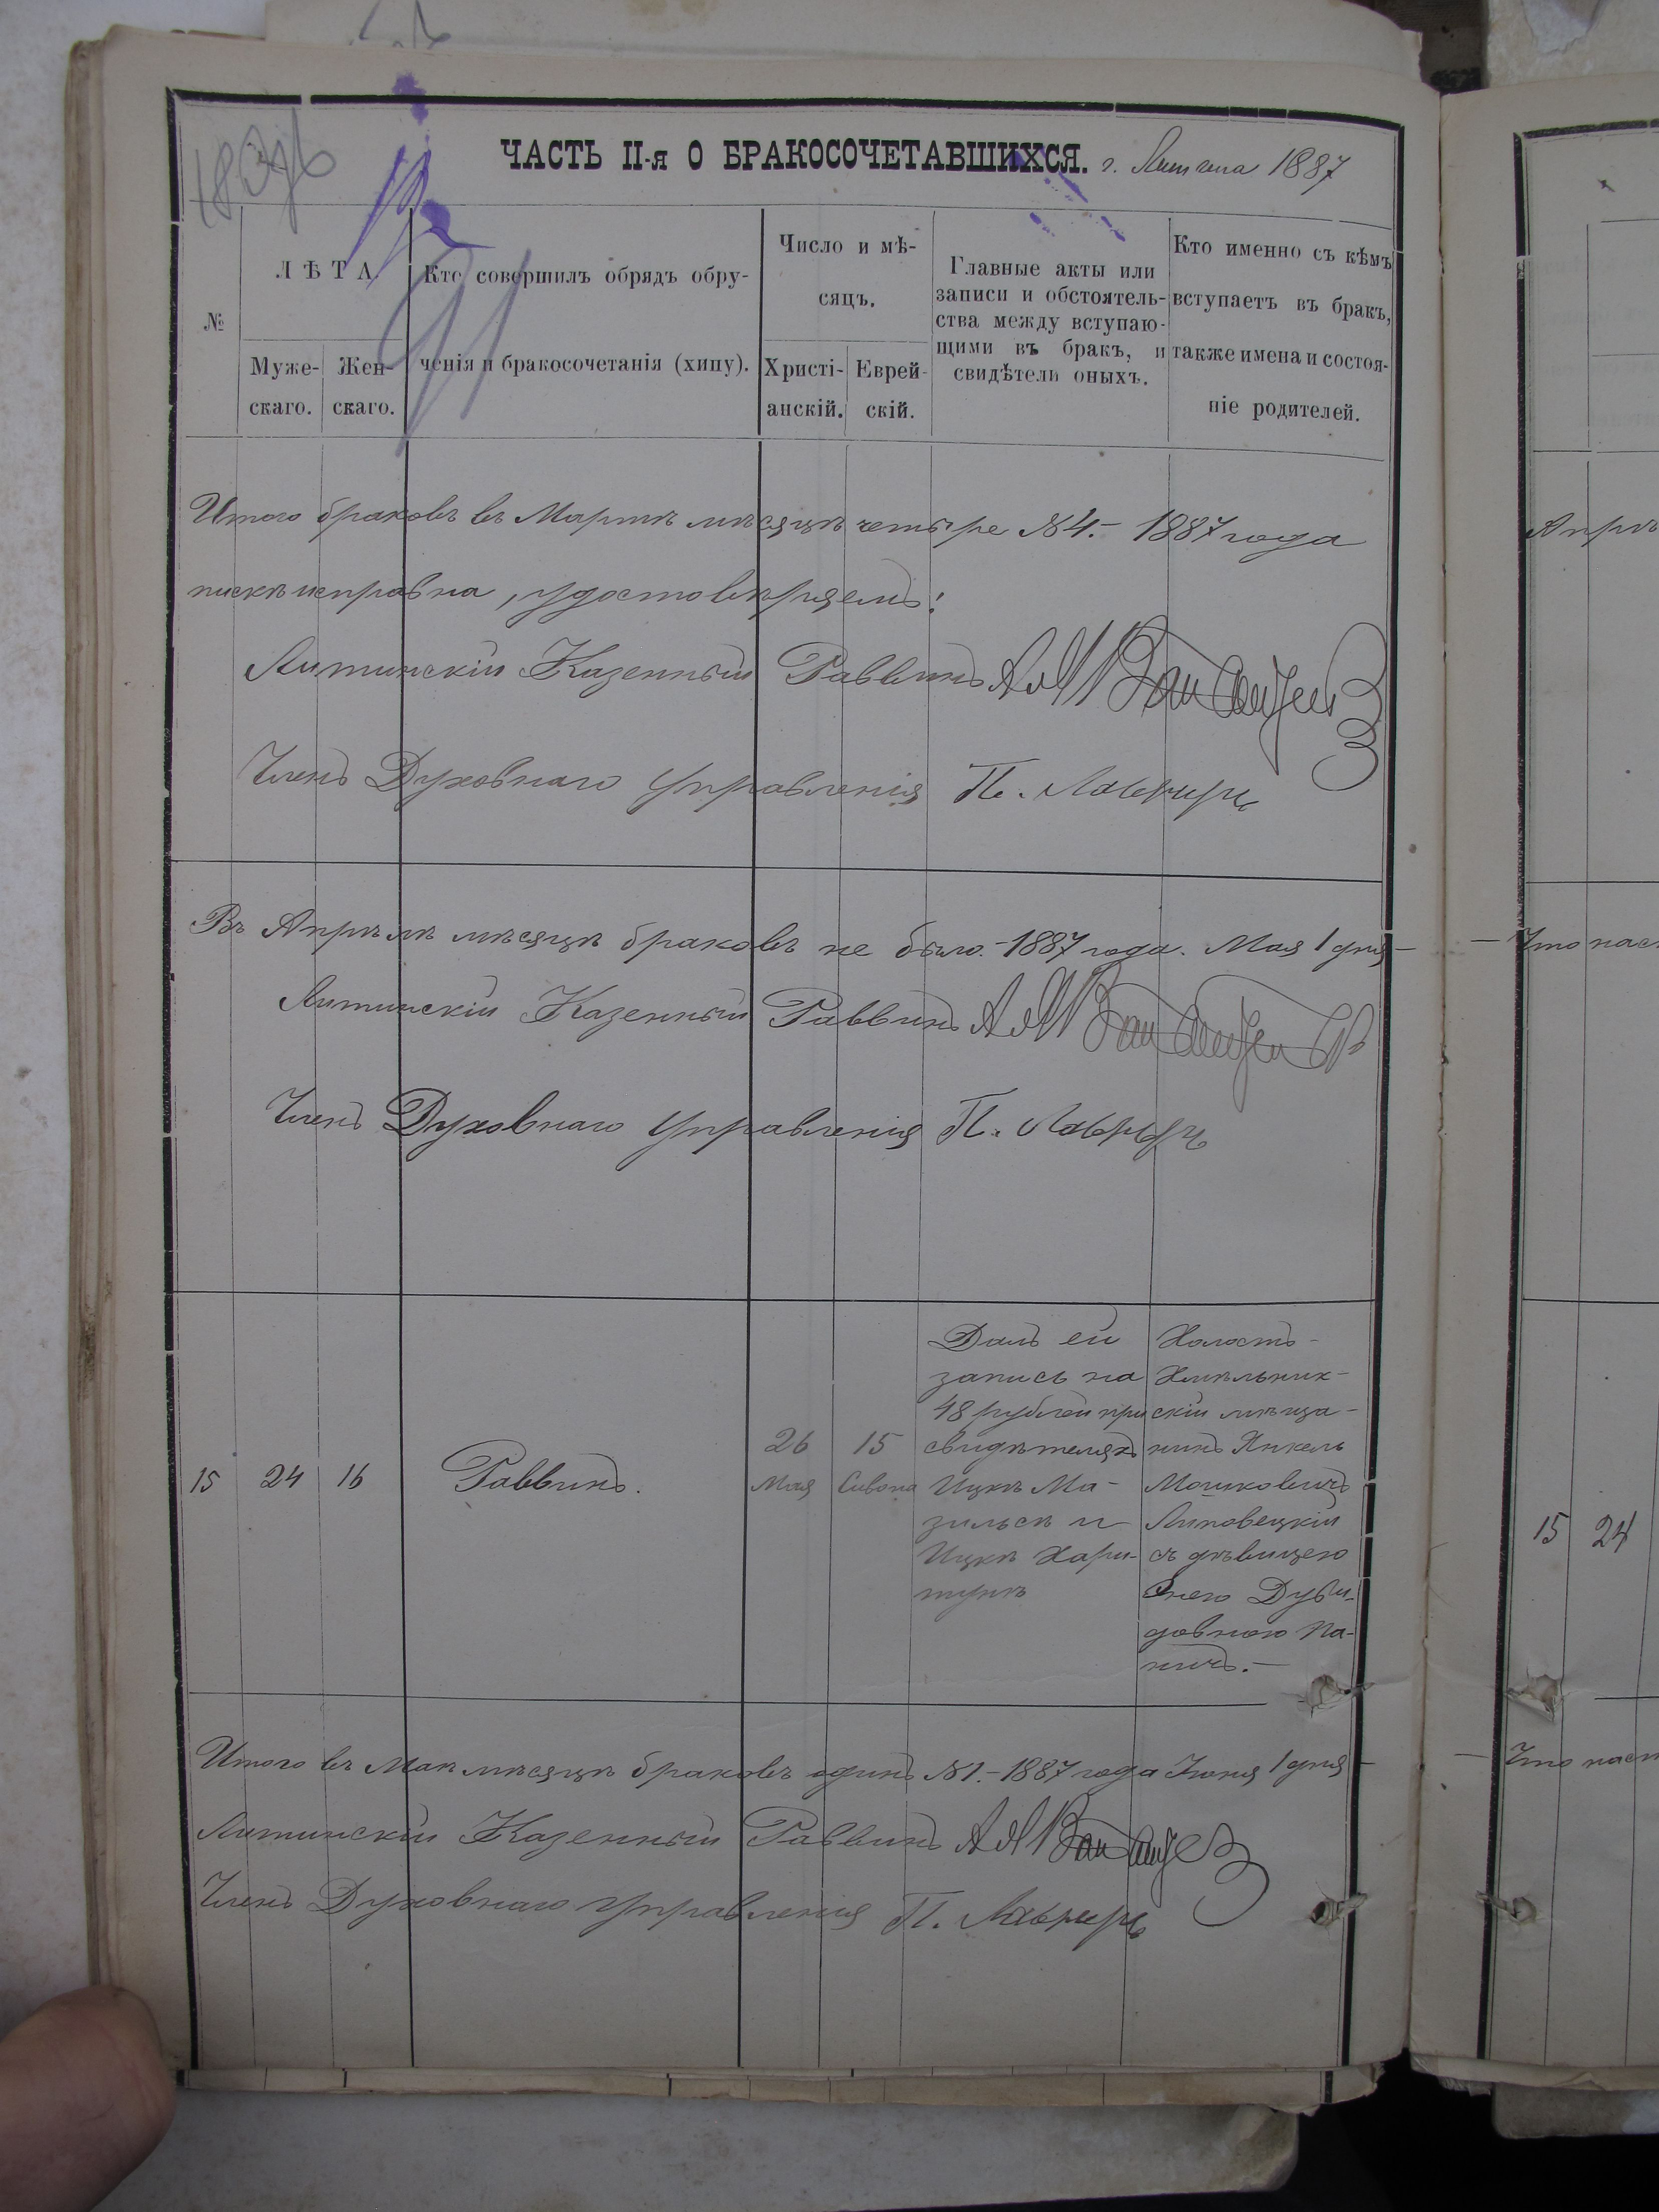 ЧАСТЬ II-я О БРАКОСОЧЕТАВШИХСЯ. г. Литина 1887
№
ЛѢТА
Муже-
скаго.
Жен-
скаго.
Кто совершилъ обрядъ обру-
ченія и бракосочетанія (хипу).
Число и мѣ-
сяцъ.
Христі-
анскій.
Еврей-
скій.
Главные акты или
записи и обстоятель-
ства между вступаю-
щими въ бракъ, и
свидѣтели оныхъ.
Кто именно съ кѣмъ
вступаетъ въ бракъ,
также имена и состоя-
ніе родителей.
Итого браковъ въ Мартѣ мѣсяцѣ четыре №4.- 1887 года
исправна, удостовѣряемъ:
Литинскій Казенный Раввинъ
Членъ Духовнаго Управленія П.
Въ Апрѣлѣ мѣсяцѣ браковъ не было.- 1887 года. Мая 1 дня -
Литинскій Казенный Раввинъ
Членъ Духовнаго Управленія П.
15
24
16
Раввинъ.
26
Мая
15
Сивона
Далъ ей
запись на
48 рублей при
свидѣтеляхъ
Ицкѣ Ма-
зильскѣ и
Ицкѣ Хари-
тункѣ
Холостъ -
Хмѣльник-
скій мѣща-
нинъ Янкель
Мошковичъ
Липовецкій
съ дѣвицею
Енею Дуви-
довною Па-
ничъ. -
Итого въ Маѣ мѣсяцѣ браковъ одинъ №1.- 1887 года Іюня 1 дня -
Литинскій Казенный Раввинъ
Членъ Духовнаго Управленія П.
15
24